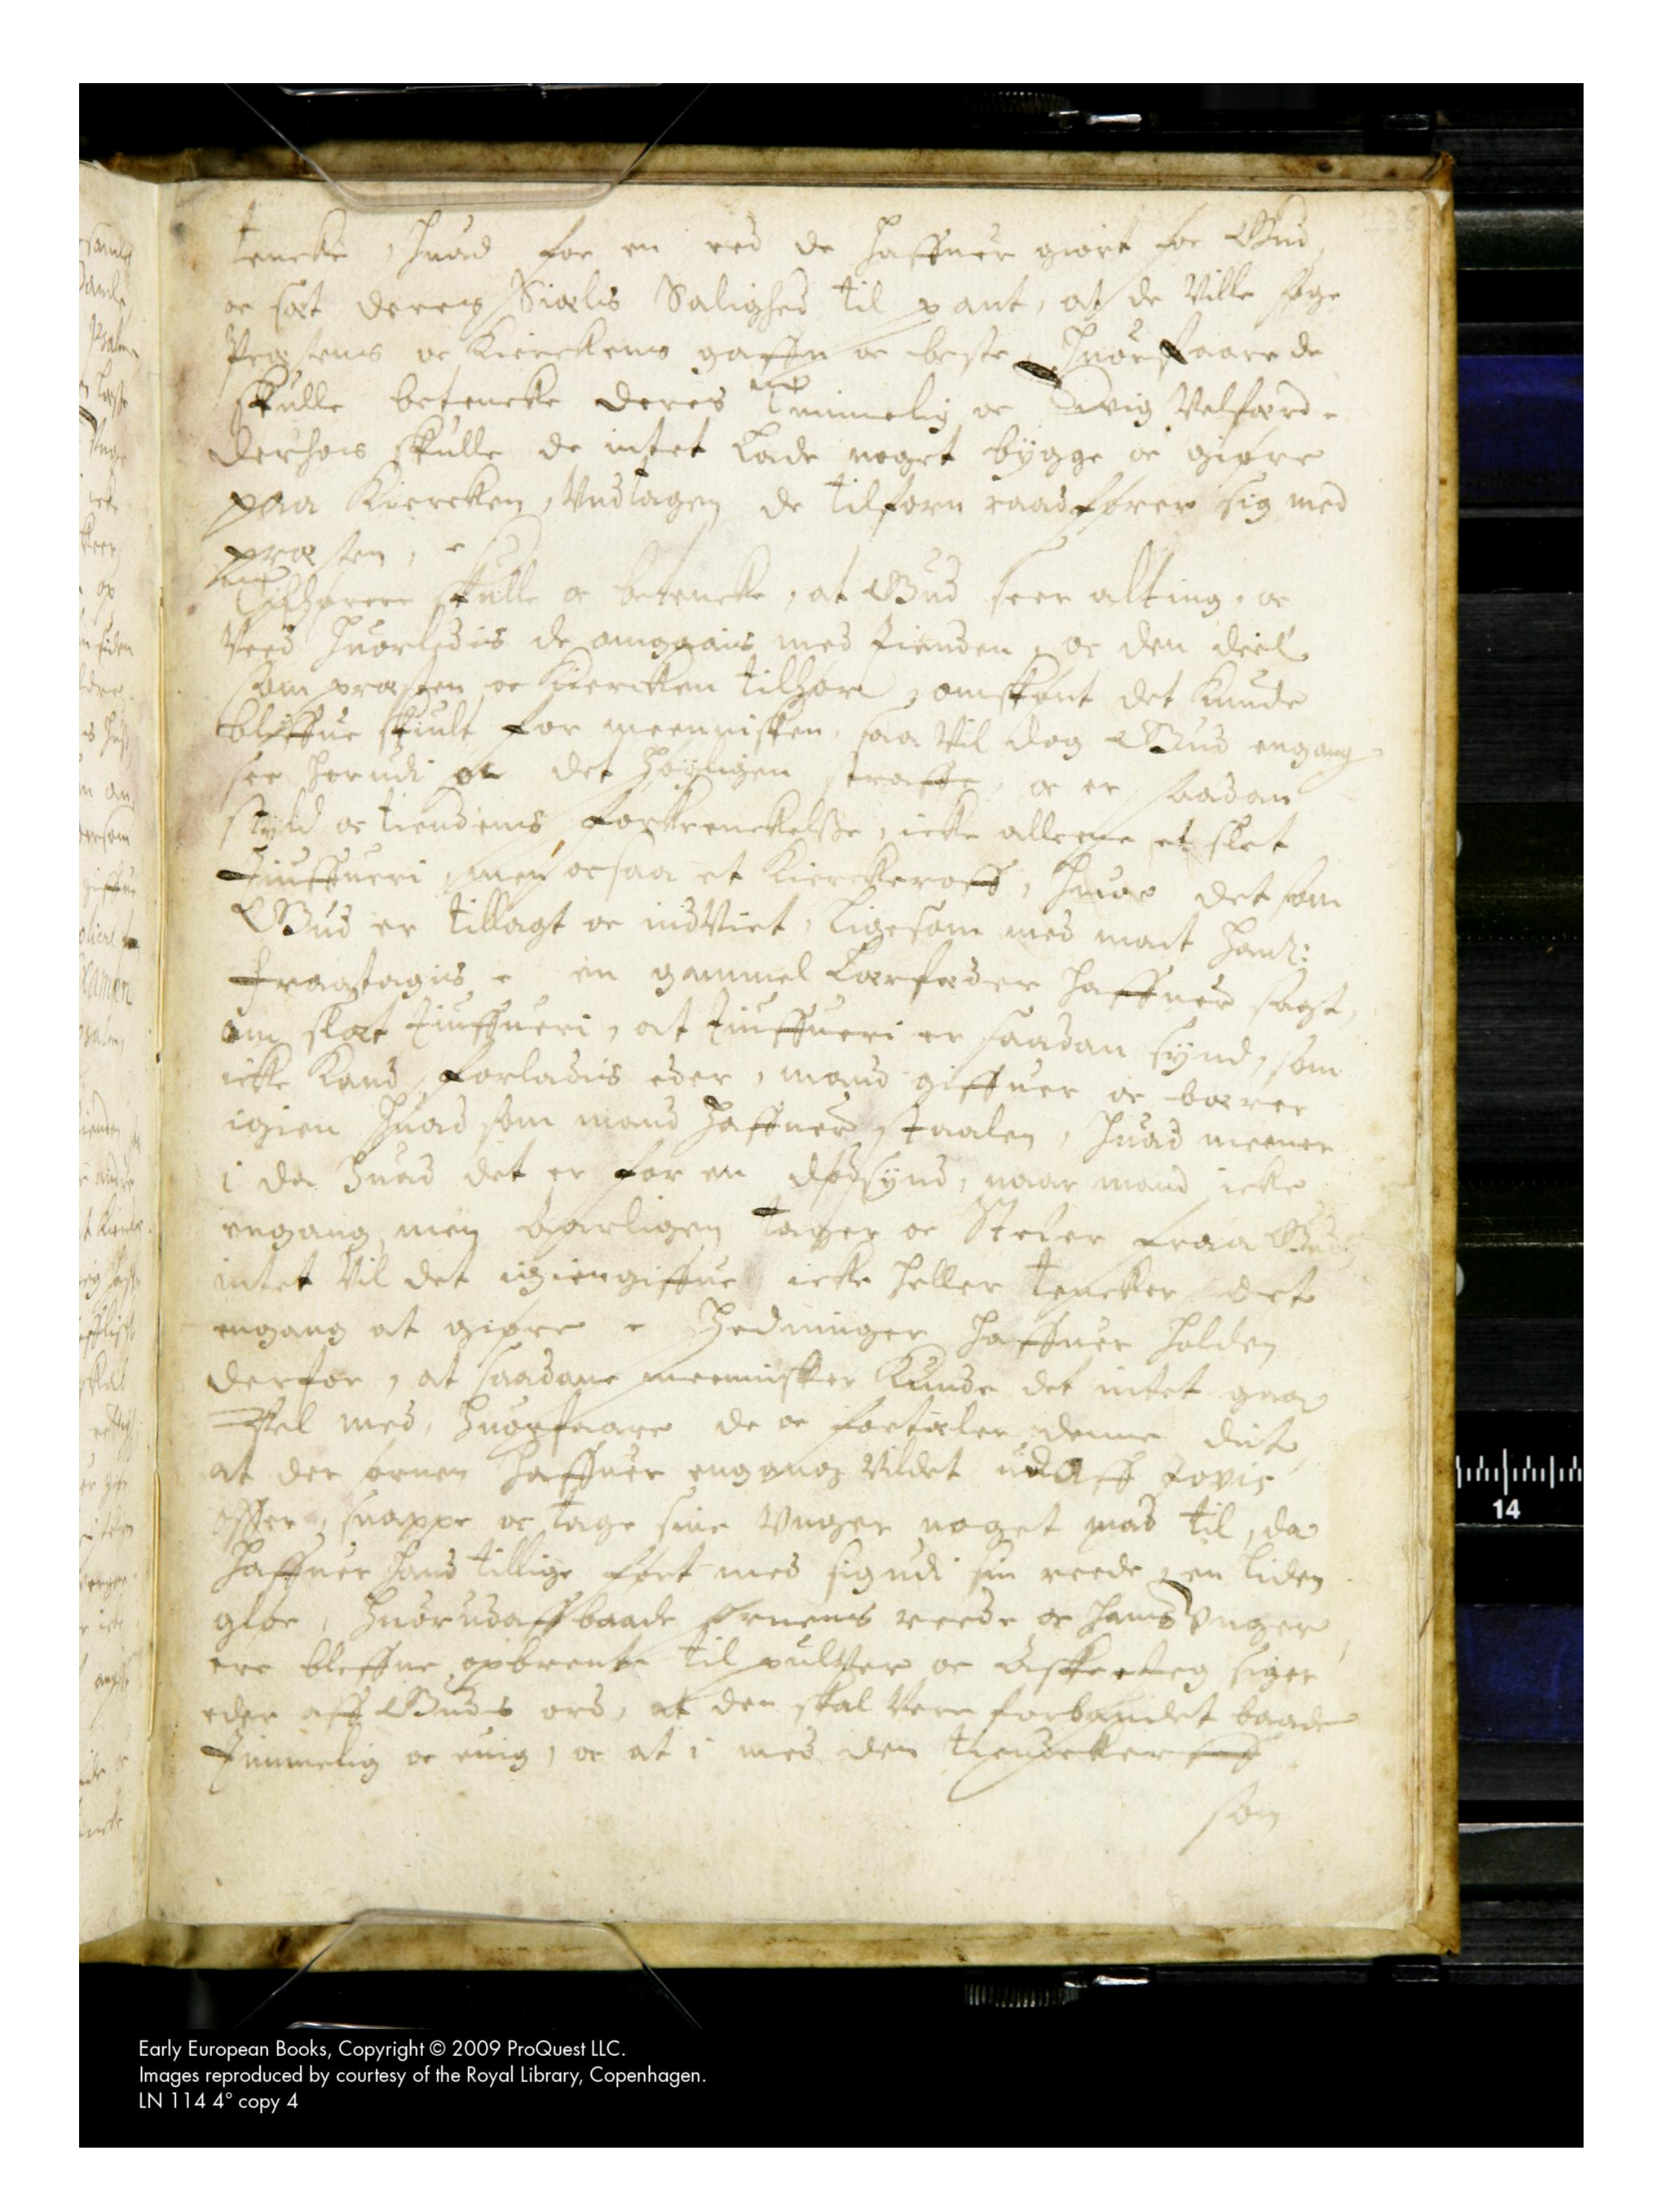 tencke, huad for en eed de haffuer giort for Gud,
oc sat deris Siælis Salighed til pant, at de ville søge
Præstens oc Kierckens gaffn oc beste, huorfaare de
skulle betencke deris timmelig oc Evig Velfærd.
derhos skulle de intet lade noget bygge oc giøre
paa Kiercken, Vndtagen de tilforn raadfører sig med
præsten,
Tilhørere skulle oc betencke, at Gud seer alting, oc
Veed huorledis de omgaais med tienden, oc den deel
som præsten oc Kiercken tilhør, omskønt det kunde
bliffue skiult for menniskon, saa vil dog Gud engang
see herudi oc det høyligen straffe, oc er saadan
skyld oc tiendens forkrenckelsse, icke allene et slet
tiuffueri, men ocsaa et Kierckeroff, huor det som
Gud er tillagt oc indviet, ligesom med mact hand:
fraatagis. en gammel Lærfader haffuer sagt,
om slæt tiuffueri, at tiuffueri er saadan synd, som
icke kand forladis eder, mand giffuer oc bærer
igien huad som mand haffuer staalen, huad meener
i da huad det er for en dødsynd, naar mand icke
engang, men aarligen tager oc Steler fraa Gud,
intet vil det igiengiffue, icke heller tencker det
engang at giøre. Hedninger haffuer holden
derfor, at saadane mennisker kunde det intet gaa
vel med, huorfaare de oc fortæler denne dict,
at der ørnen haffuer engang vildet udaff Jovis
offer, snappe oc tage sine Vnger noget mad til, da
haffuer hand tillige ført med sig udi sin reede, en liden
gloe, huorudaff baade ørnens reede oc hans Vnger
ere bleffne opbrente til pulver oc Aske. Jeg siger
eder aff Guds ord, at den skal være forbandet baade
timmelig oc euig, oc at i med den
som
Early European Books, Copyright © 2009 ProQuest LLC.
Images reproduced by courtesy of the Royal Library, Copenhagen.
LN 114 4° copy 4
14